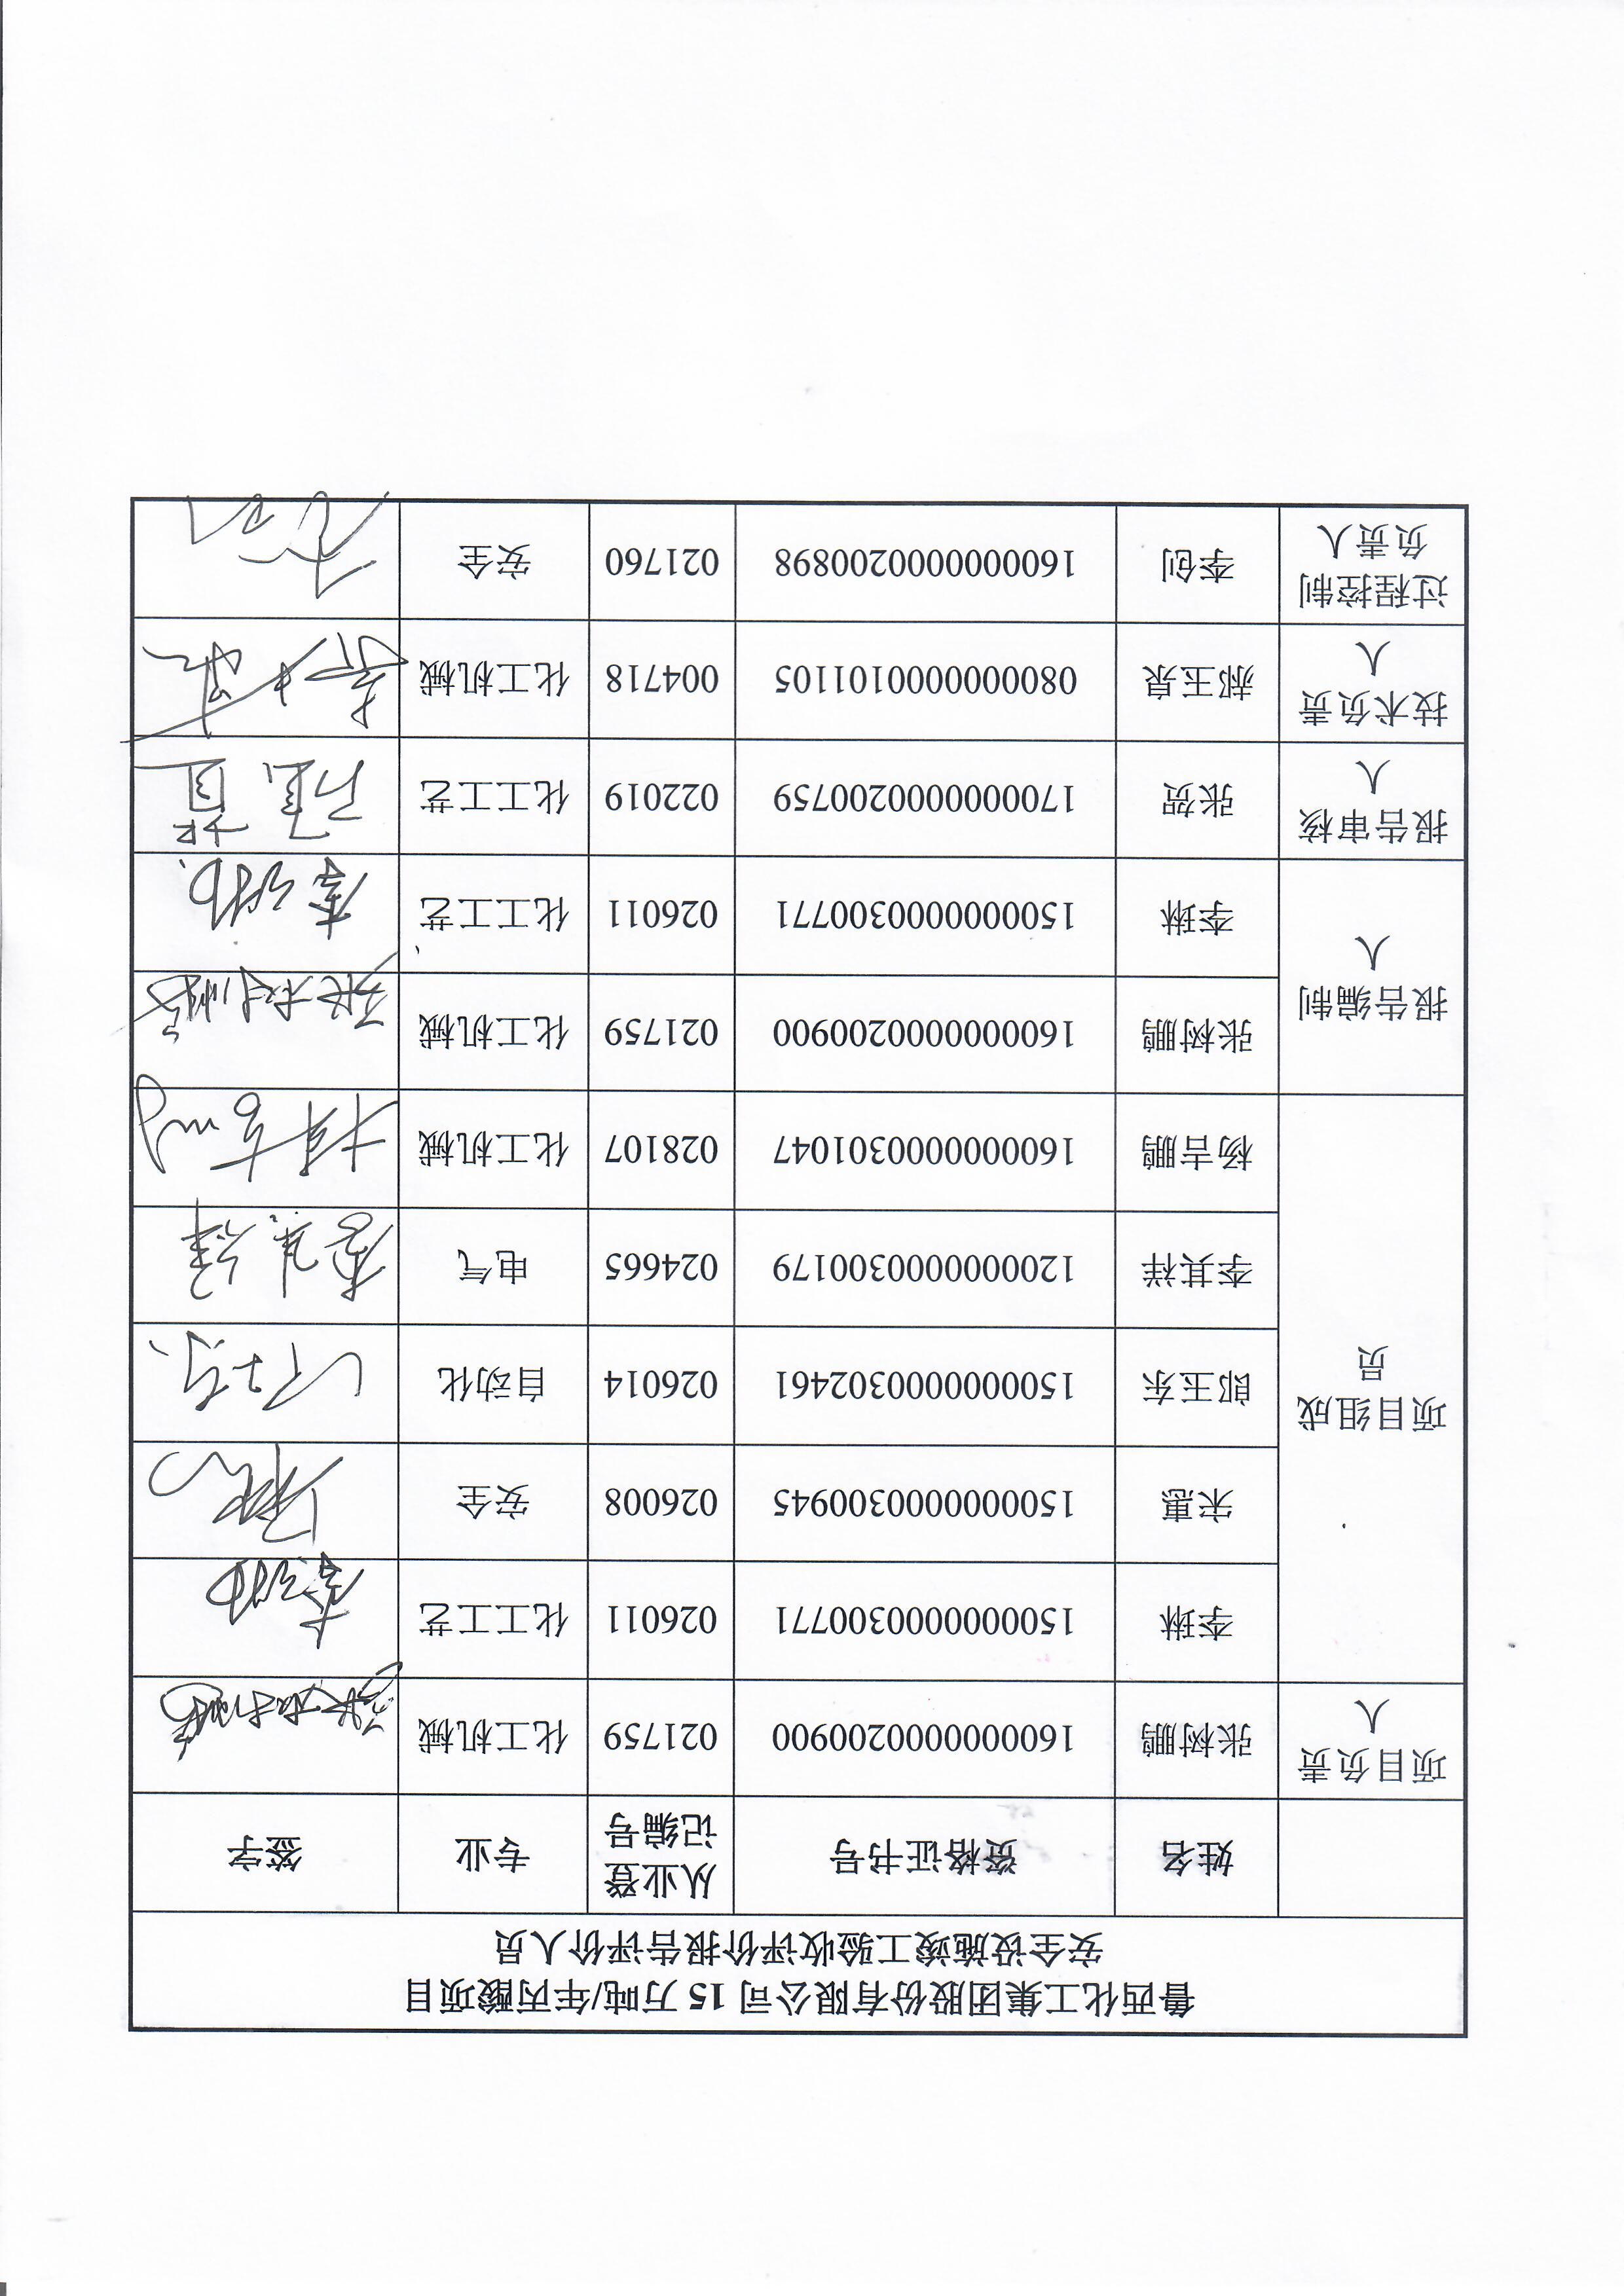 鲁西化工集团股份有限公司 15 万吨/年丙酸项目
安全设施竣工验收评价报告评价人员
姓名 资格证书号 从业登记编号 专业 签字
项目负责人 张树鹏 1600000000200900 021759 化工机械 张树鹏
项目组成员 李琳 1500000000300771 026011 化工工艺 李琳
宋惠 1500000000300945 026008 安全
郎玉东 1500000000302461 026014 自动化
李其祥 1200000000300179 024665 电气 李其祥
杨吉鹏 1600000000301047 028107 化工机械 杨吉鹏
报告编制人 张树鹏 1600000000200900 021759 化工机械 张树鹏
李琳 1500000000300771 026011 化工工艺 李琳
报告审核人 张贺 1700000000200759 022019 化工工艺 张贺
技术负责人 郝玉泉 0800000000101105 004718 化工机械
过程控制负责人 李创 1600000000200898 021760 安全 李创